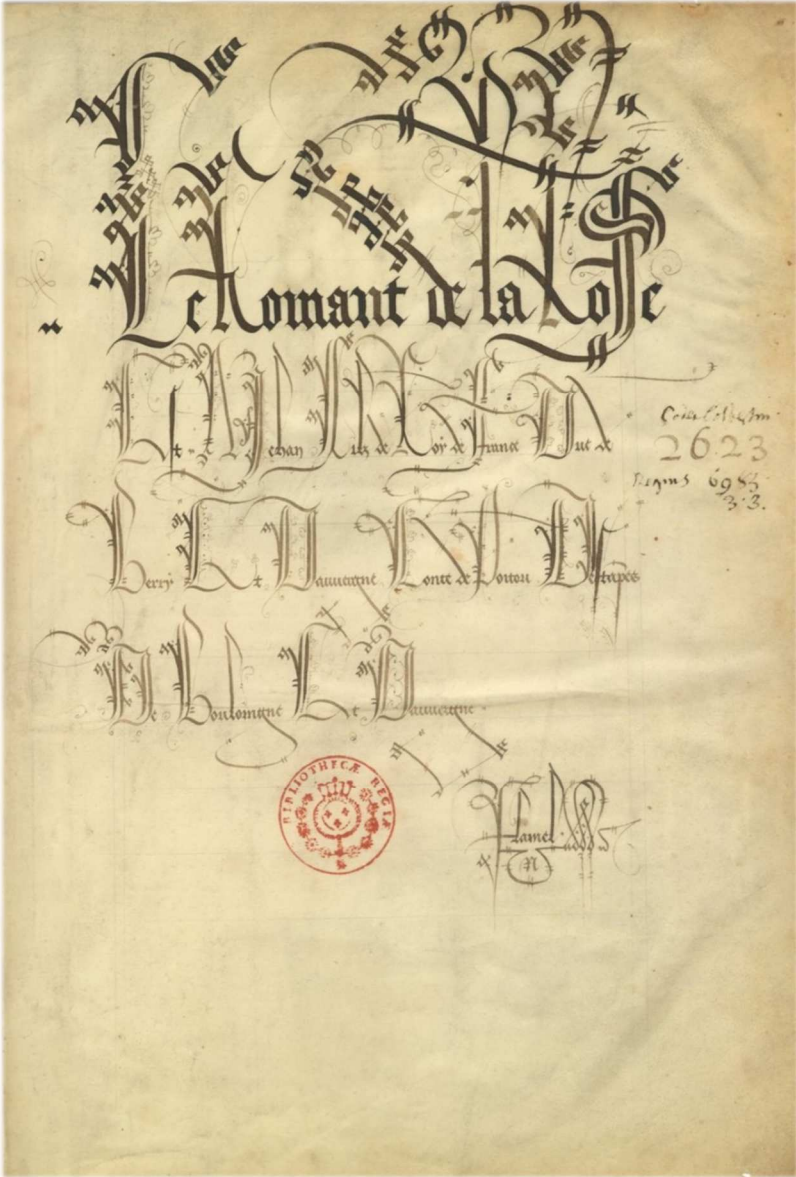 Le Romant de la Rose
Et A Jehan filz de Roy de France Duc de
Berry Et Dauuergne Conte de Poitou Destampes
De Bouloingne Et Dauuergne
2623
Regius 6983
3.3.
Flamel
N
BIBLIOTHECÆ REGIÆ